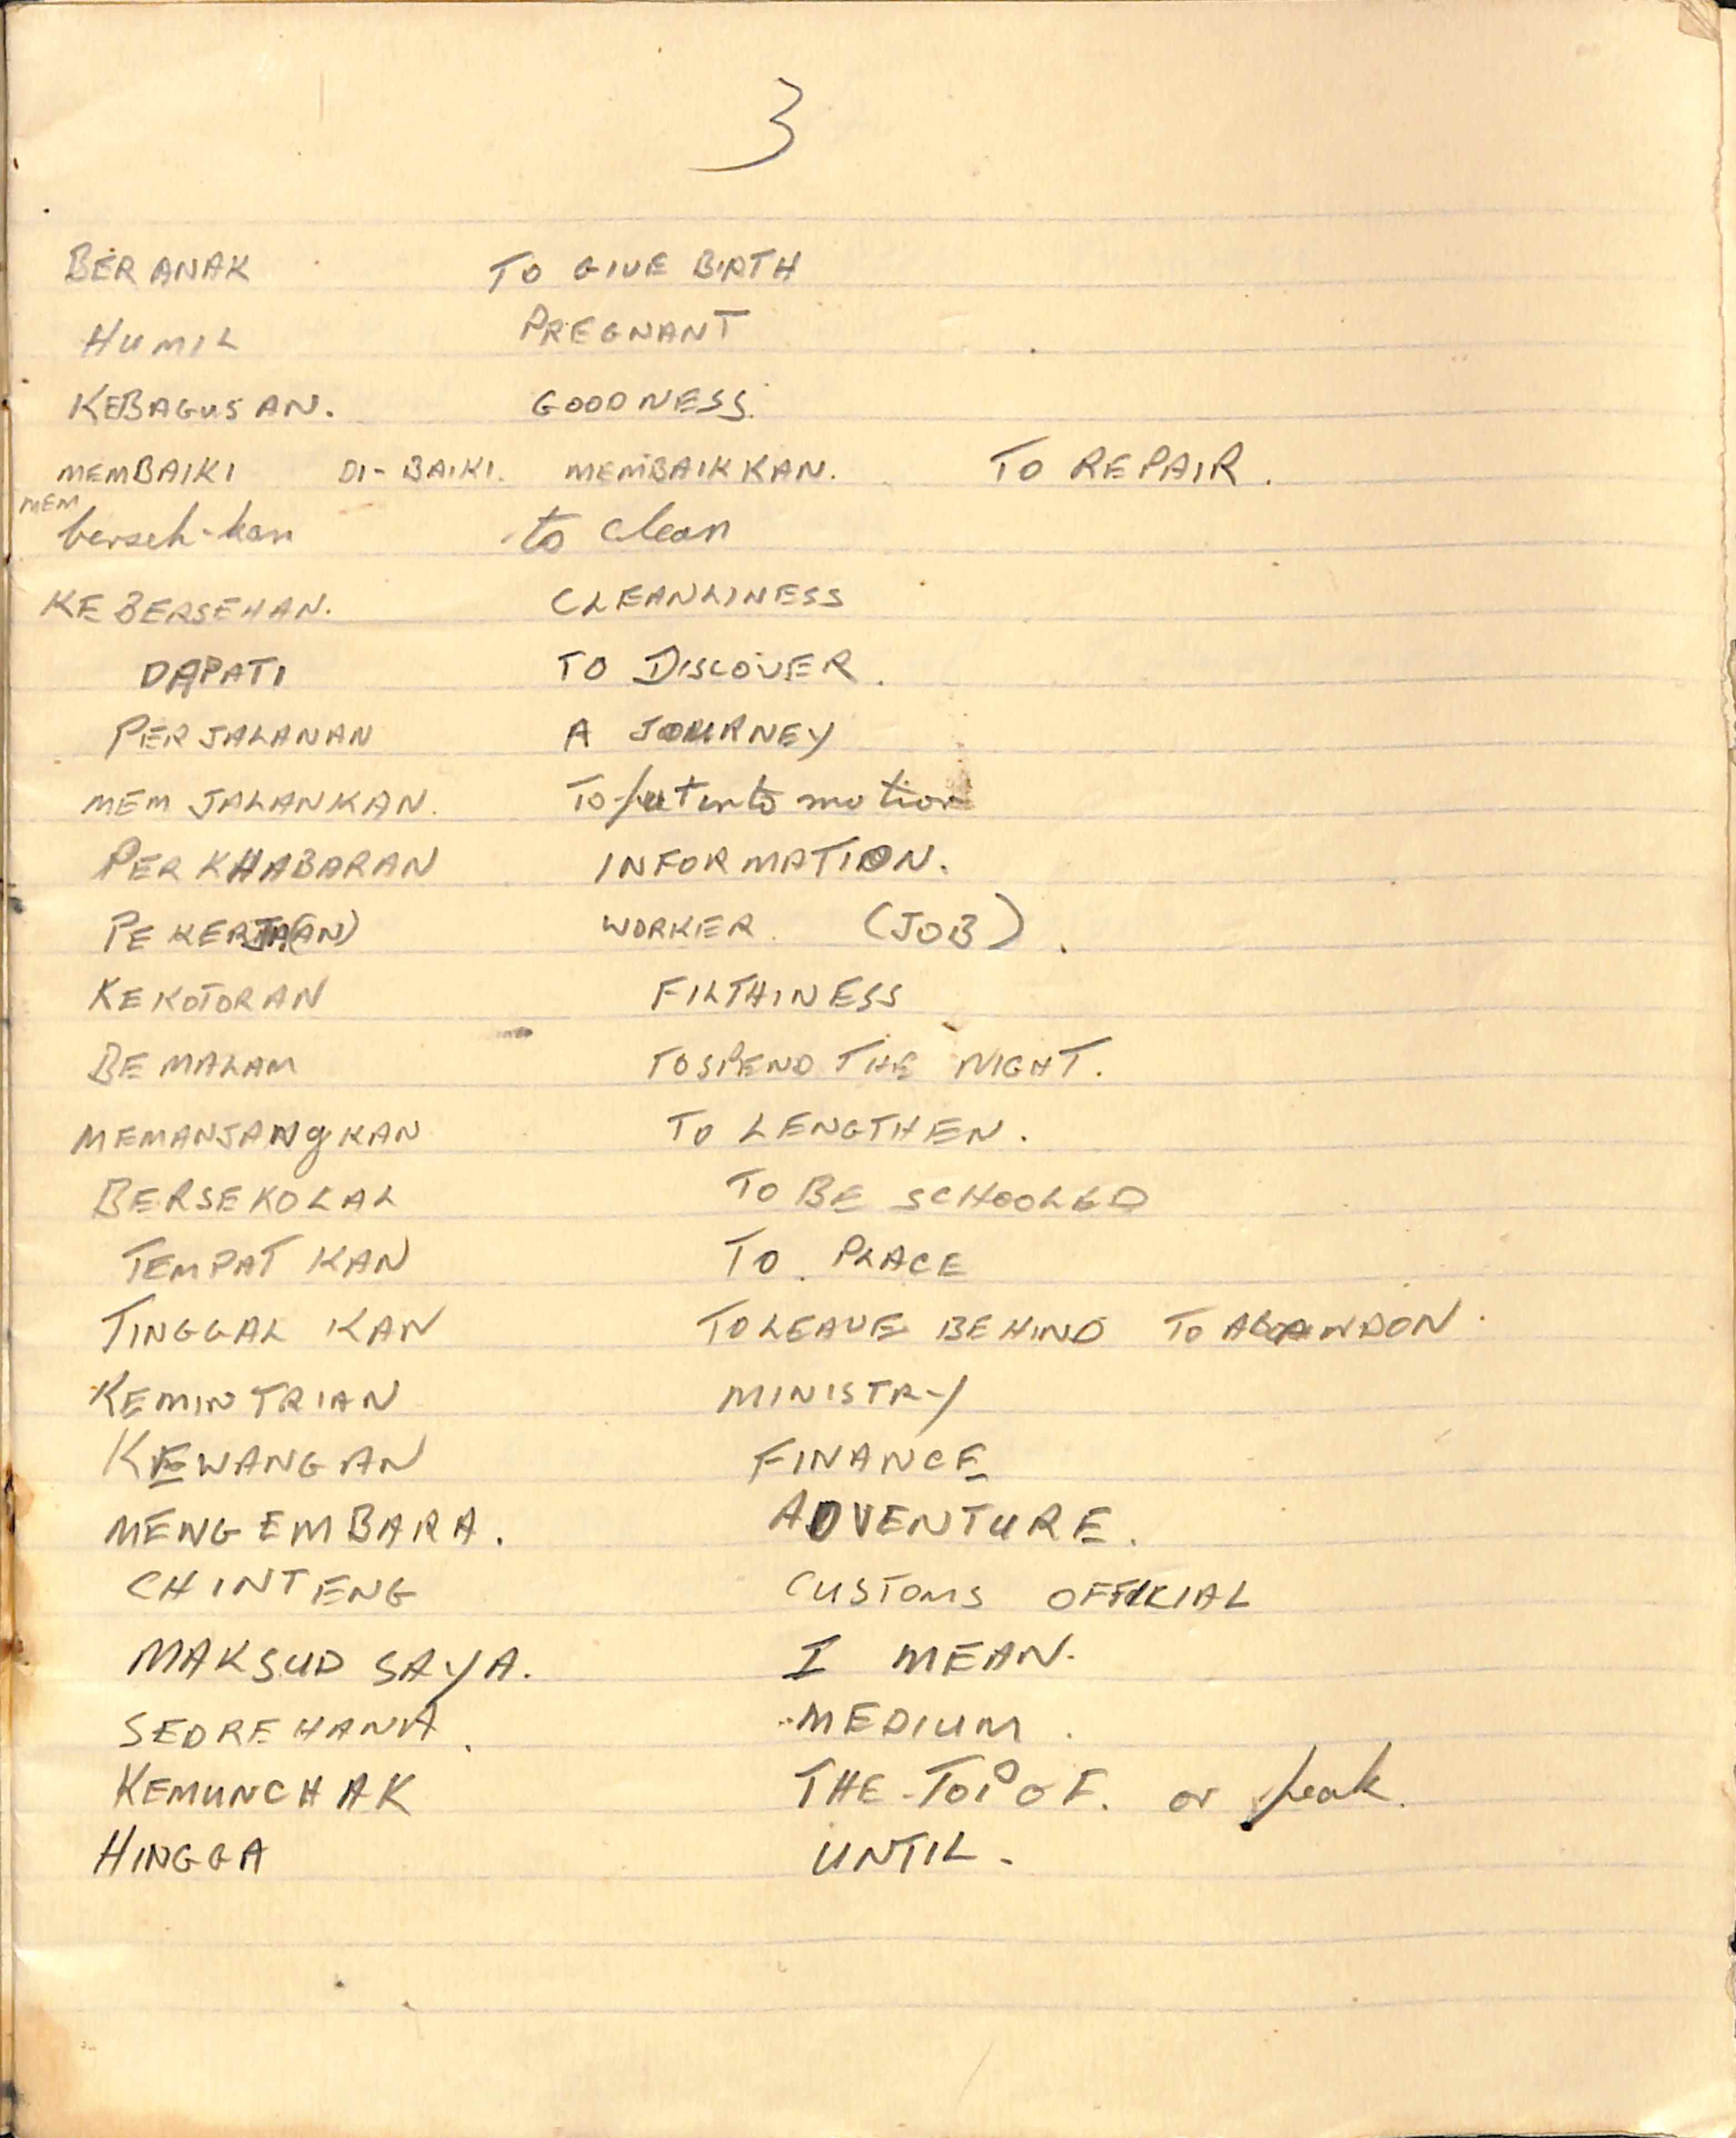 3
BERANAK TO GIVE BIRTH
HUMIL PREGNANT
KEBAGUSAN. GOODNESS.
MEMBAIKI DI-BAIKI. MEMBAIKKAN. TO REPAIR.
MEM
berseh-kan to clean
KEBERSEHAN. CLEANLINESS
DAPATI TO DISCOVER.
PERJALANAN A JOURNEY
MEMJALANKAN. To put into motion
PERKHABARAN INFORMATION.
PEKERJA(AN) WORKER (JOB).
KEKOTORAN FILTHINESS
BEMALAM TO SPEND THE NIGHT.
MEMANJANgKAN TO LENGTHEN.
BERSEKOLAL TO BE SCHOOLED
TEMPAT KAN TO PLACE
TINGGAL KAN TO LEAVE BEHIND TO ABANDON.
KEMINTRIAN MINISTRY
KEWANGAN FINANCE
MENGEMBARA. ADVENTURE.
CHINTENG CUSTOMS OFFICIAL
MAKSUD SAYA. I MEAN.
SEDREHANA. MEDIUM.
KEMUNCHAK THE TOP OF. or peak.
HINGGA UNTIL.